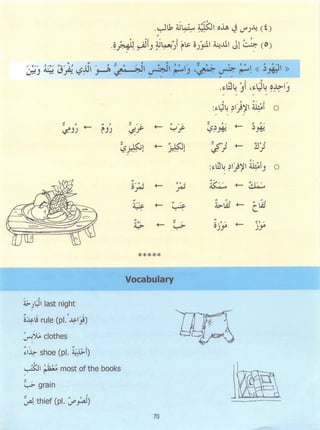 (٤) يدرس في هذه الكلية ... طالب.
(٥) جئت إلى المدينة المنورة قبل ... وأشهر.
«اليهود» اسم جنس جمعي، واسم الجنس الجمعي هو الذي يفرق بينه وبين
واحده بالياء، أو بالتاء.
o أمثلة الإفراد بالياء:
يهود ← يهودي
عرب ← عربي
روم ← رومي
ترك ← تركي
إنكليز ← إنكليزي
o وأمثلة الإفراد بالتاء:
سمك ← سمكة
تمر ← تمرة
تفاح ← تفاحة
موز ← موزة
حب ← حبة
*****
Vocabulary
البارحة last night
قاعدة rule (pl. قواعد)
ملابس clothes
حذاء shoe (pl. أحذية)
معظم الكتب most of the books
حب grain
لص thief (pl. لصوص)
70